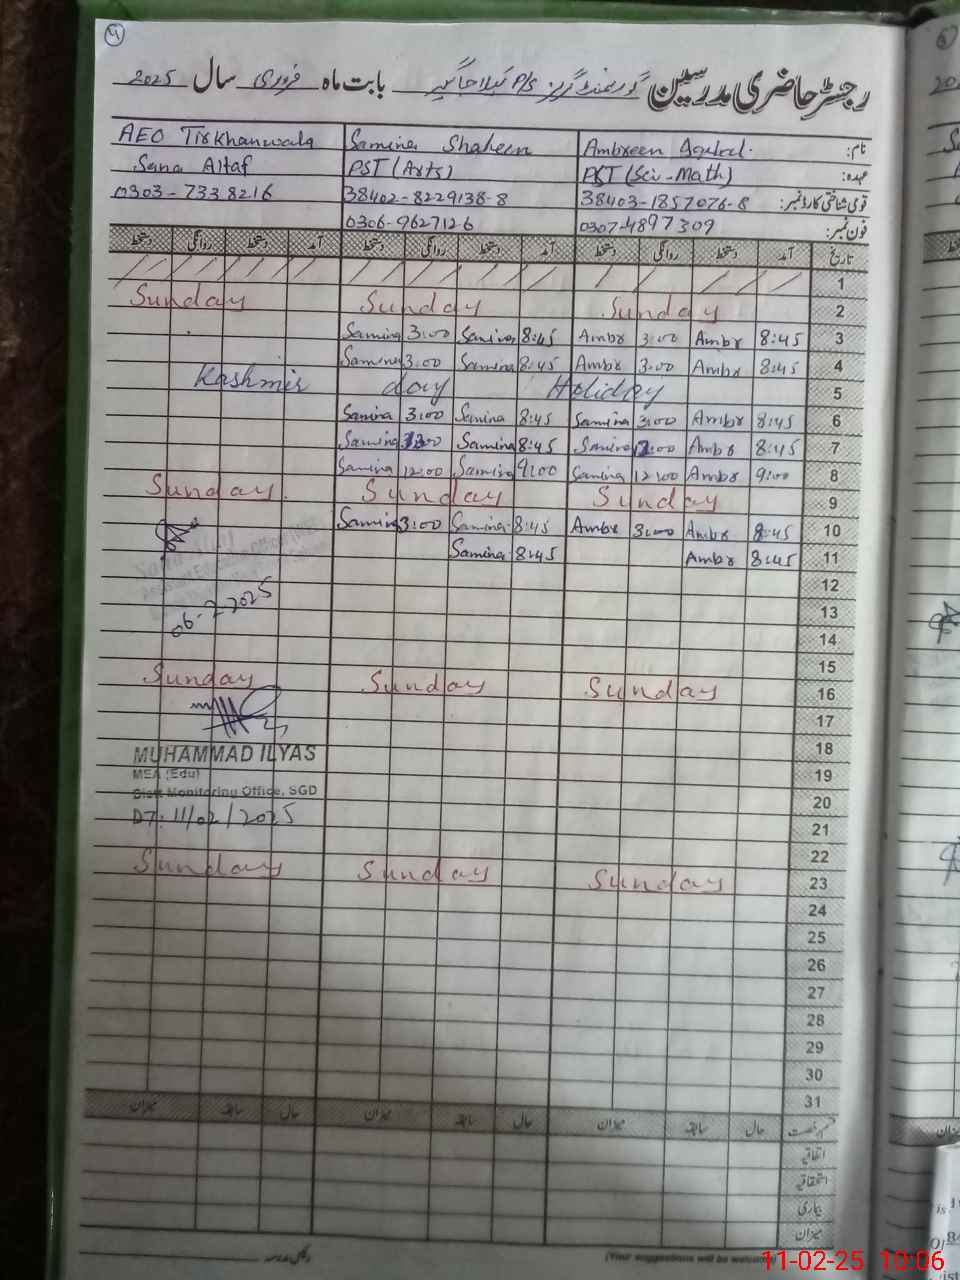 4
رجسٹر حاضری مدرسین گورنمنٹ گرلز P/S ٹھیلا جاگیر بابت ماہ فروری سال 2025
AEO Tirkhanwala Samina Shaheen Ambreen Iqbal. نام:
Sana Altaf PST (Arts) PST (Sci-Math) عہدہ:
0303-7338216 38402-8229138-8 38403-1857076-8 قومی شناختی کارڈ نمبر:
0306-9627126 0307-4897309 فون نمبر:
دستخط روانگی دستخط آمد دستخط روانگی دستخط آمد دستخط روانگی دستخط آمد تاریخ
1
Sunday Sunday Sunday 2
Samina 3:00 Samina 8:45 Ambr 3:00 Ambr 8:45 3
Samina 3:00 Samina 8:45 Ambr 3:00 Ambr 8:45 4
Kashmir day Holiday 5
Samina 3:00 Samina 8:45 Samina 3:00 Ambr 8:45 6
Samina Samina 8:45 Samina Ambr 8:45 7
Samina 12:00 Samina 9:00 Samina 12:00 Ambr 9:00 8
Sunday Sunday Sunday 9
Samina 3:00 Samina 8:45 Ambr 3:00 Ambr 8:45 10
Samina 8:45 Ambr 8:45 11
12
06-2-2025 13
14
15
Sunday Sunday Sunday 16
17
18
MUHAMMAD ILYAS
MEA (Edu) 19
Distt Monitoring Office, SGD 20
DT: 11/02/2025 21
22
Sunday Sunday Sunday 23
24
25
26
27
28
29
30
31
میزان سابقہ حال میزان سابقہ حال میزان سابقہ حال قسم رخصت
اتفاقیہ
استحقاقیہ
بیماری
میزان
(Your suggestions will be welcome)
11-02-25 10:06